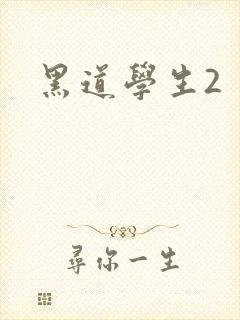 黑道學生2
尋你一生